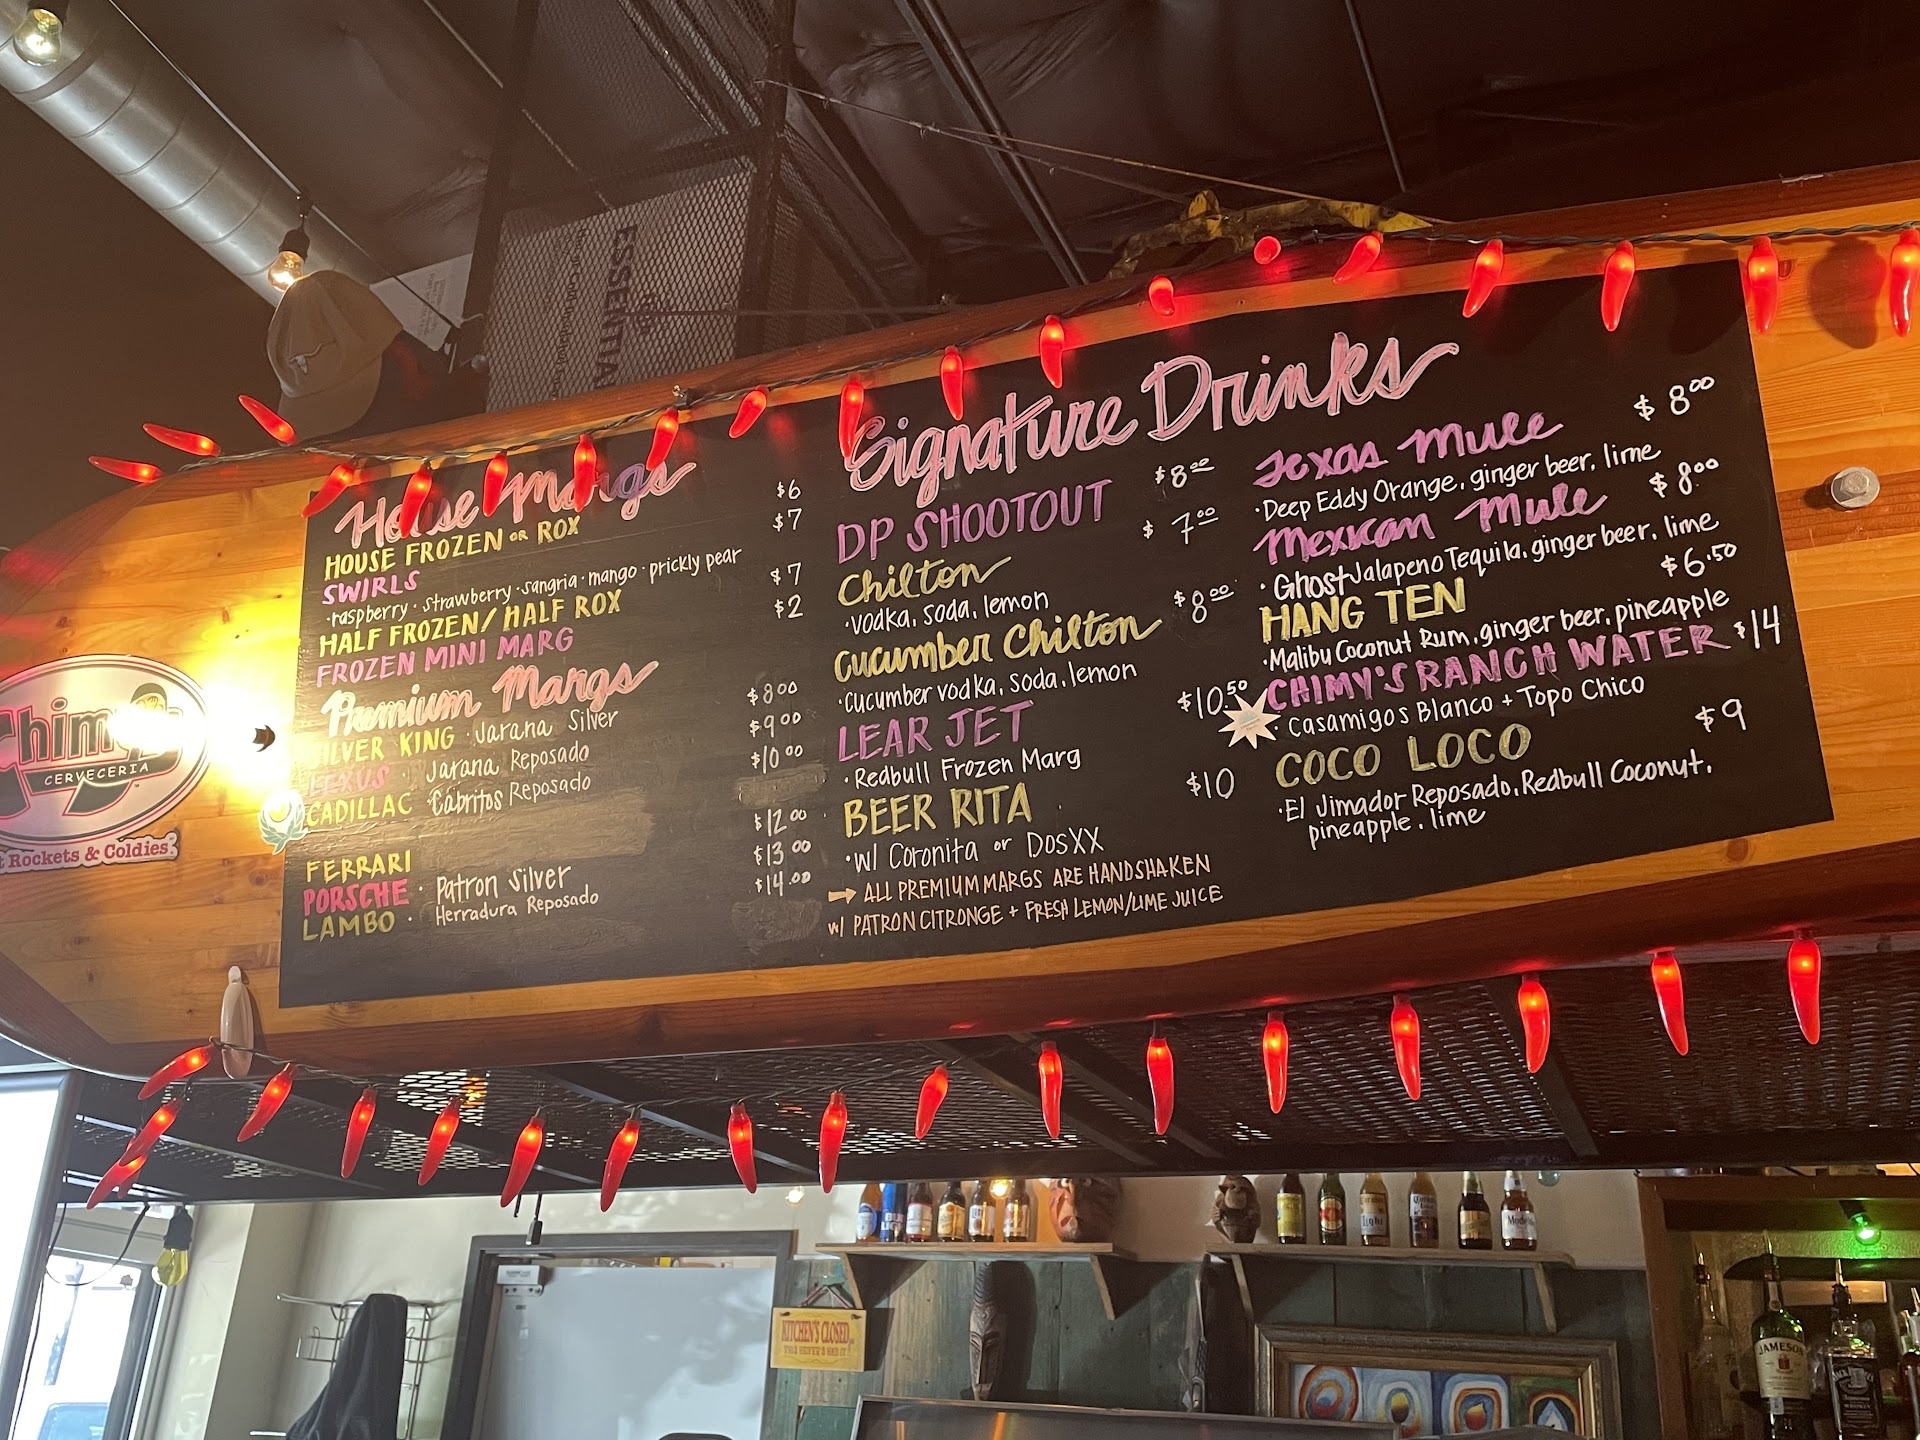 ESSENTIA
Chimy's
CERVECERIA
t Rockets & Coldies.
House Margs
HOUSE FROZEN OR ROX $6
SWIRLS $7
·raspberry · strawberry · sangria · mango · prickly pear
HALF FROZEN/HALF ROX $7
FROZEN MINI MARG $2
Premium Margs
SILVER KING · Jarana Silver $8.00
LEXUS · Jarana Reposado $9.00
CADILLAC · Cabritos Reposado $10.00
FERRARI $12.00
PORSCHE · Patron Silver $13.00
LAMBO · Herradura Reposado $14.00
Signature Drinks
DP SHOOTOUT $8.00
Chilton $7.00
·vodka, soda, lemon
Cucumber Chilton $8.00
·Cucumber vodka, soda, lemon
LEAR JET $10.50
·Redbull Frozen Marg
BEER RITA $10
·w/ Coronita or DosXX
→ ALL PREMIUM MARGS ARE HANDSHAKEN
w/ PATRON CITRONGE + FRESH LEMON/LIME JUICE
Texas Mule $8.00
·Deep Eddy Orange, ginger beer, lime
Mexican Mule $8.00
·Ghost Jalapeno Tequila, ginger beer, lime
HANG TEN $6.50
·Malibu Coconut Rum, ginger beer, pineapple
CHIMY'S RANCH WATER $14
·Casamigos Blanco + Topo Chico
COCO LOCO $9
·El Jimador Reposado, Redbull Coconut,
pineapple, lime
KITCHEN'S CLOSED
JAMESON